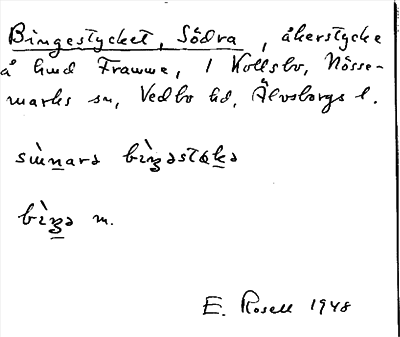 Bingestycket, Södra, åkerstycke
å hmd Framme, 1 Kollsbo, Nösse-
marks sn, Vedbo hd, Älvsborgs l.
sinnara bìŋəstəkə
bìŋə m.
E. Rosell 1948